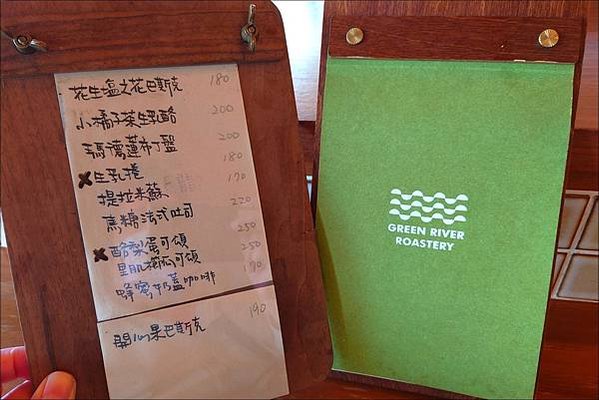 花生塩之花巴斯克 180
小橘子茶生乳酪 200
瑪德蓮布丁盤 200
生乳捲 180
提拉米蘇 170
黑糖法式吐司 220
酪梨蛋可頌 250
可頌 250
蜂蜜奶蓋咖啡 170
開心果巴斯克 190
GREEN RIVER
ROASTERY